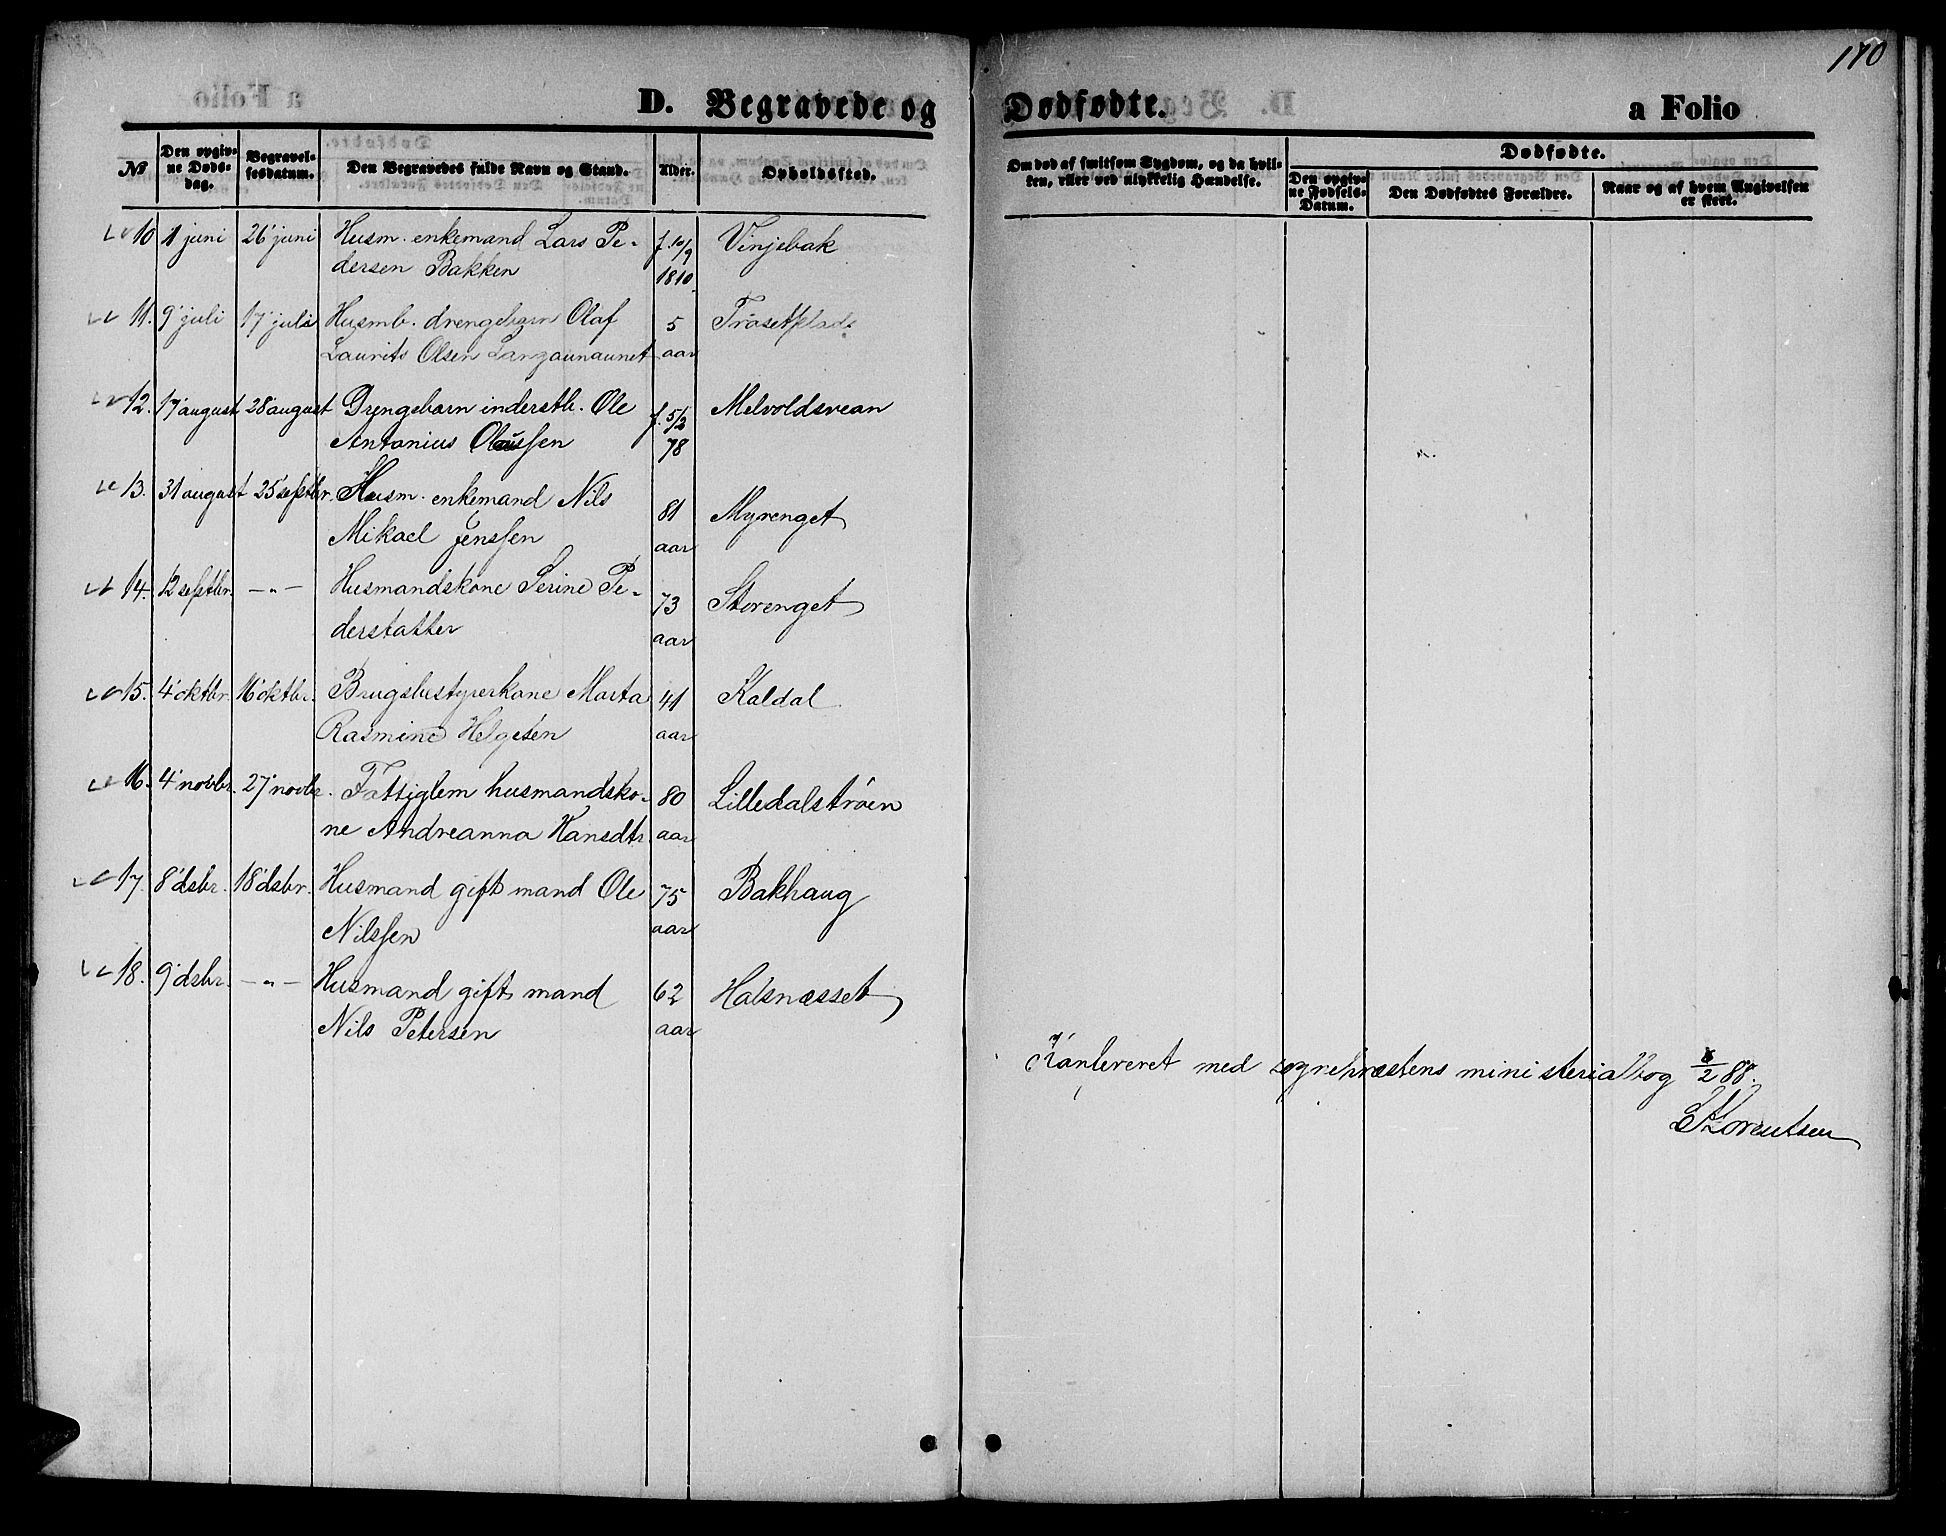 170
D. Begravede og Dødfødte. a Folio
№ Den opgivne Dødsdag. Begravelsesdatum. Den Begravedes fulde Navn og Stand. Alder. Opholdssted. Om død af smitsom Sygdom, og da hvilken, eller ved ulykkelig Hændelse. Dødfødte. Den opgivne Fødsels-Datum. Den Dødfødtes Forældre. Naar og af hvem Angivelsen er skeet.
10 1 juni 26' juni Husm. enkemand Lars Pe- f. 10/9 Vinjebak
dersen Bakken 1810.
11. 9' juli 17' juli Husmb. drengebarn Olaf 5 Trøsetplads
Laurits Olsen Langaunaunet aar
12. 17' august 28' august Drengebarn inderstb. Ole f. 5/2 Melvoldsvean
Antonius Olaussen 78
13. 31 august 25' septbr. Husm. enkemand Nils 81 Myrenget
Mikael Jenssen aar
14. 12 septbr. —"— Husmandskone Serine Pe- 73 Storenget
dersdatter aar
15. 4' oktbr. 16' oktbr. Brugsbestyrerkone Marta 41 Kaldal
Rasmine Helgesen aar
16. 4' novbr. 27' novbr. Fattiglem husmandsko- 80 Lilledalstrøen
ne Andreanna Hansdtr. aar
17. 8' dsbr. 18' dsbr. Husmand gift mand Ole 75 Bakhaug
Nilssen aar
18. 9' dsbr. —"— Husmand gift mand 62 Halsnæsset
Nils Petersen aar
Konfereret med sognepræstens ministerialbog 8/2 88.
Lorentsen